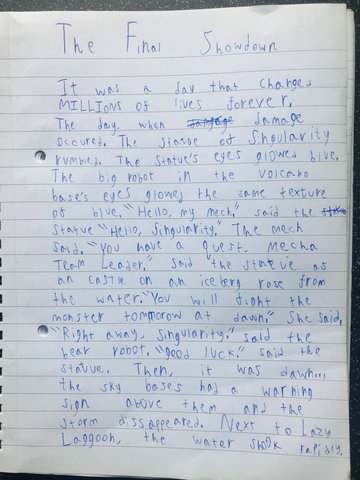 The Final Showdown
It was a day that changed
MILLIONS of lives forever.
The day when damage
occured. The statue of Singularity
rumbled. The statue's eyes glowed blue.
The big robot in the volcano
base's eyes glowed the same texture
of blue. "Hello, my mech." said the
statue "Hello, Singularity." The mech
said. "You have a quest, Mecha
Team Leader." said the statue as
an castle on an iceberg rose from
the water. "You will fight the
monster tommorow at dawn." She said,
"Right away, Singularity." said the
bear robot. "Good luck." said the
statue. Then, it was dawn:
the sky bases had a warning
sign above them and the
storm disappeared. Next to Lazy
Lagoon, the water shook rapidly.